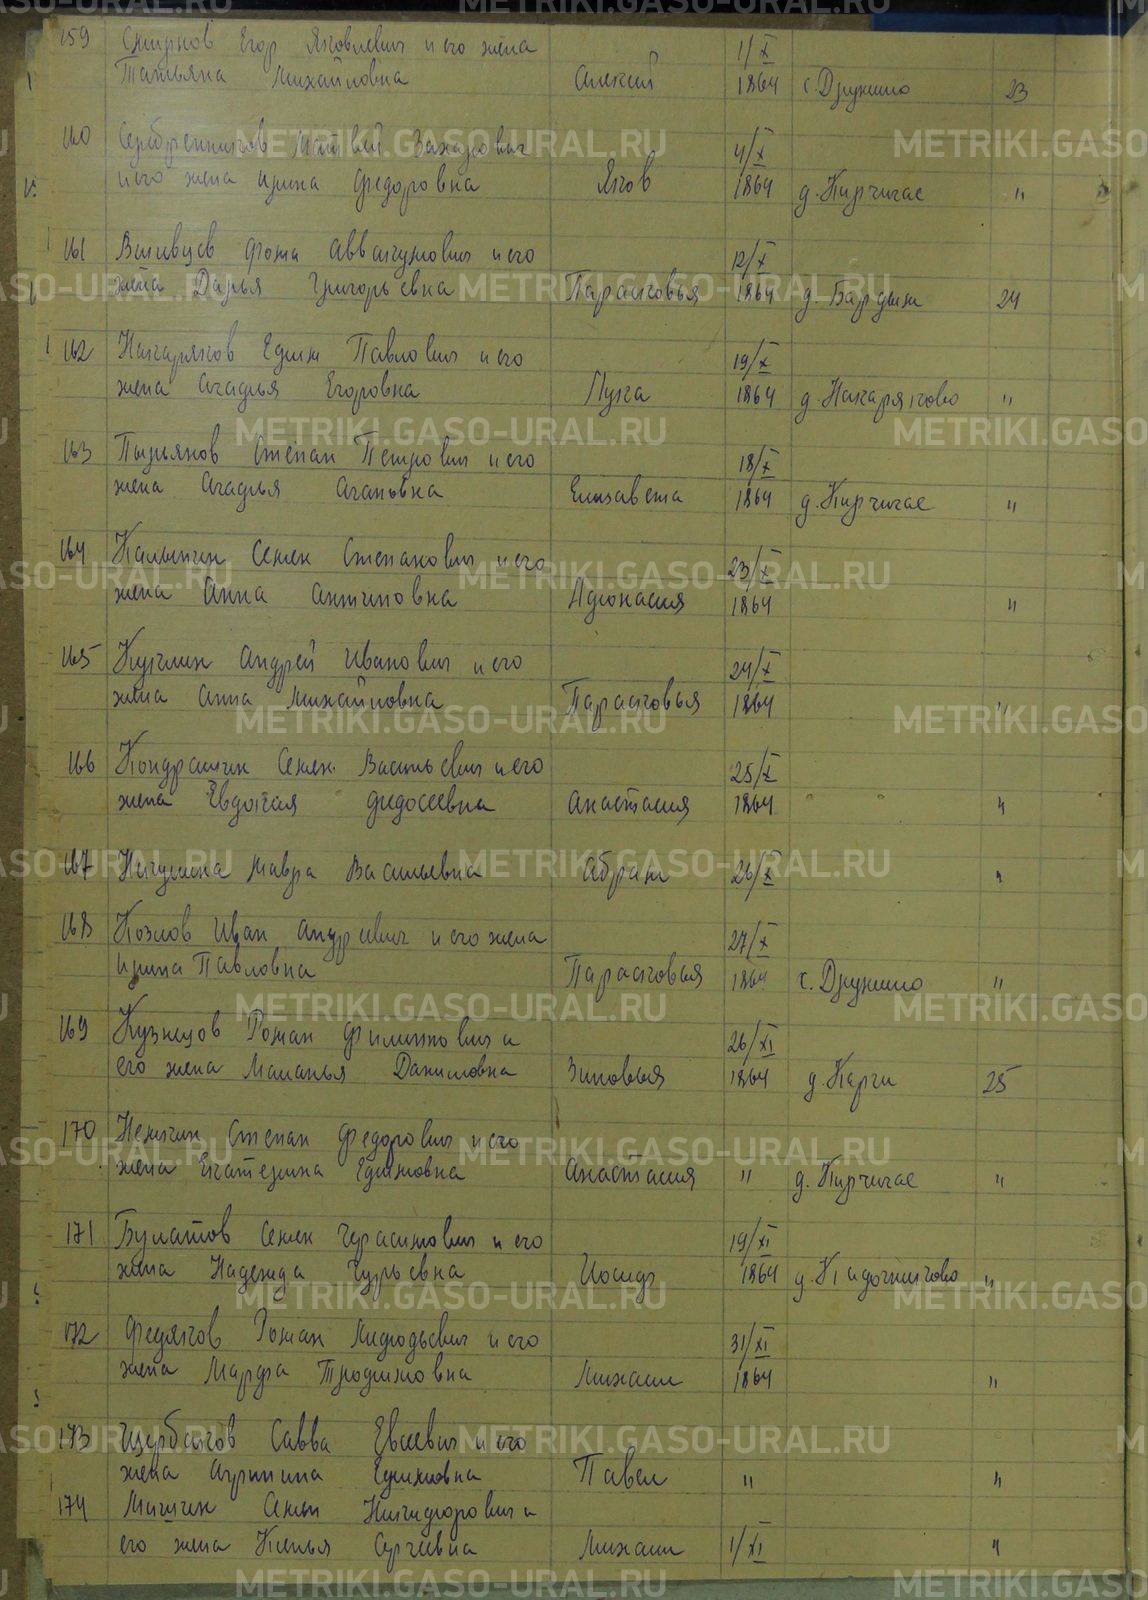 159 Смирнов Егор Яковлевич и его жена 1/X
Татьяна Михайловна Алексей 1864 с. Дружино 23
160 Серебренников Матвей Захарович 4/X
и его жена Ирина Федоровна Яков 1864 д. Киргичае "
161 Фома Аввакумович и его 12/X
жена Дарья Григорьевна Парасковья 1864 д. Бардым 24
162 Накаряков Ефим Павлович и его 19/X
жена Агафья Егоровна Лука 1864 д. Накаряково "
163 Пырьянов Степан Петрович и его 18/X
жена Агафья Агаповна Елизавета 1864 д. Киргичае "
164 Калынин Семен Степанович и его 23/X
жена Анна Антиповна Афонасия 1864 "
165 Андрей Иванович и его 24/X
жена Анна Михайловна Парасковья 1864 "
166 Кондрашин Семен Васильевич и его 25/X
жена Евдокия Федосеевна Анастасия 1864 "
167 Мавра Васильевна Абрам 26/X "
168 Козлов Иван Андреевич и его жена 27/X
Ирина Павловна Парасковья 1864 с. Дружино "
169 Кузнецов Роман Филиппович и 26/XI
его жена Маланья Даниловна Зиновья 1864 д. Карги 25
170 Немкин Степан Федорович и его
жена Екатерина Ефимовна Анастасия " д. Киргичае "
171 Булатов Семен Герасимович и его 19/XI
жена Надежда Гурьевна Иосиф 1864 д. Кадочниково "
172 Федяков Роман Мефодьевич и его 31/XI
жена Марфа Трофимовна Михаил 1864 "
173 Щербаков Савва Евсеевич и его
жена Агрипина Ефимовна Павел " "
174 Мишин Семен Никифорович и
его жена Ксенья Сергеевна Михаил 1/XI "
METRIKI.GASO-URAL.RU